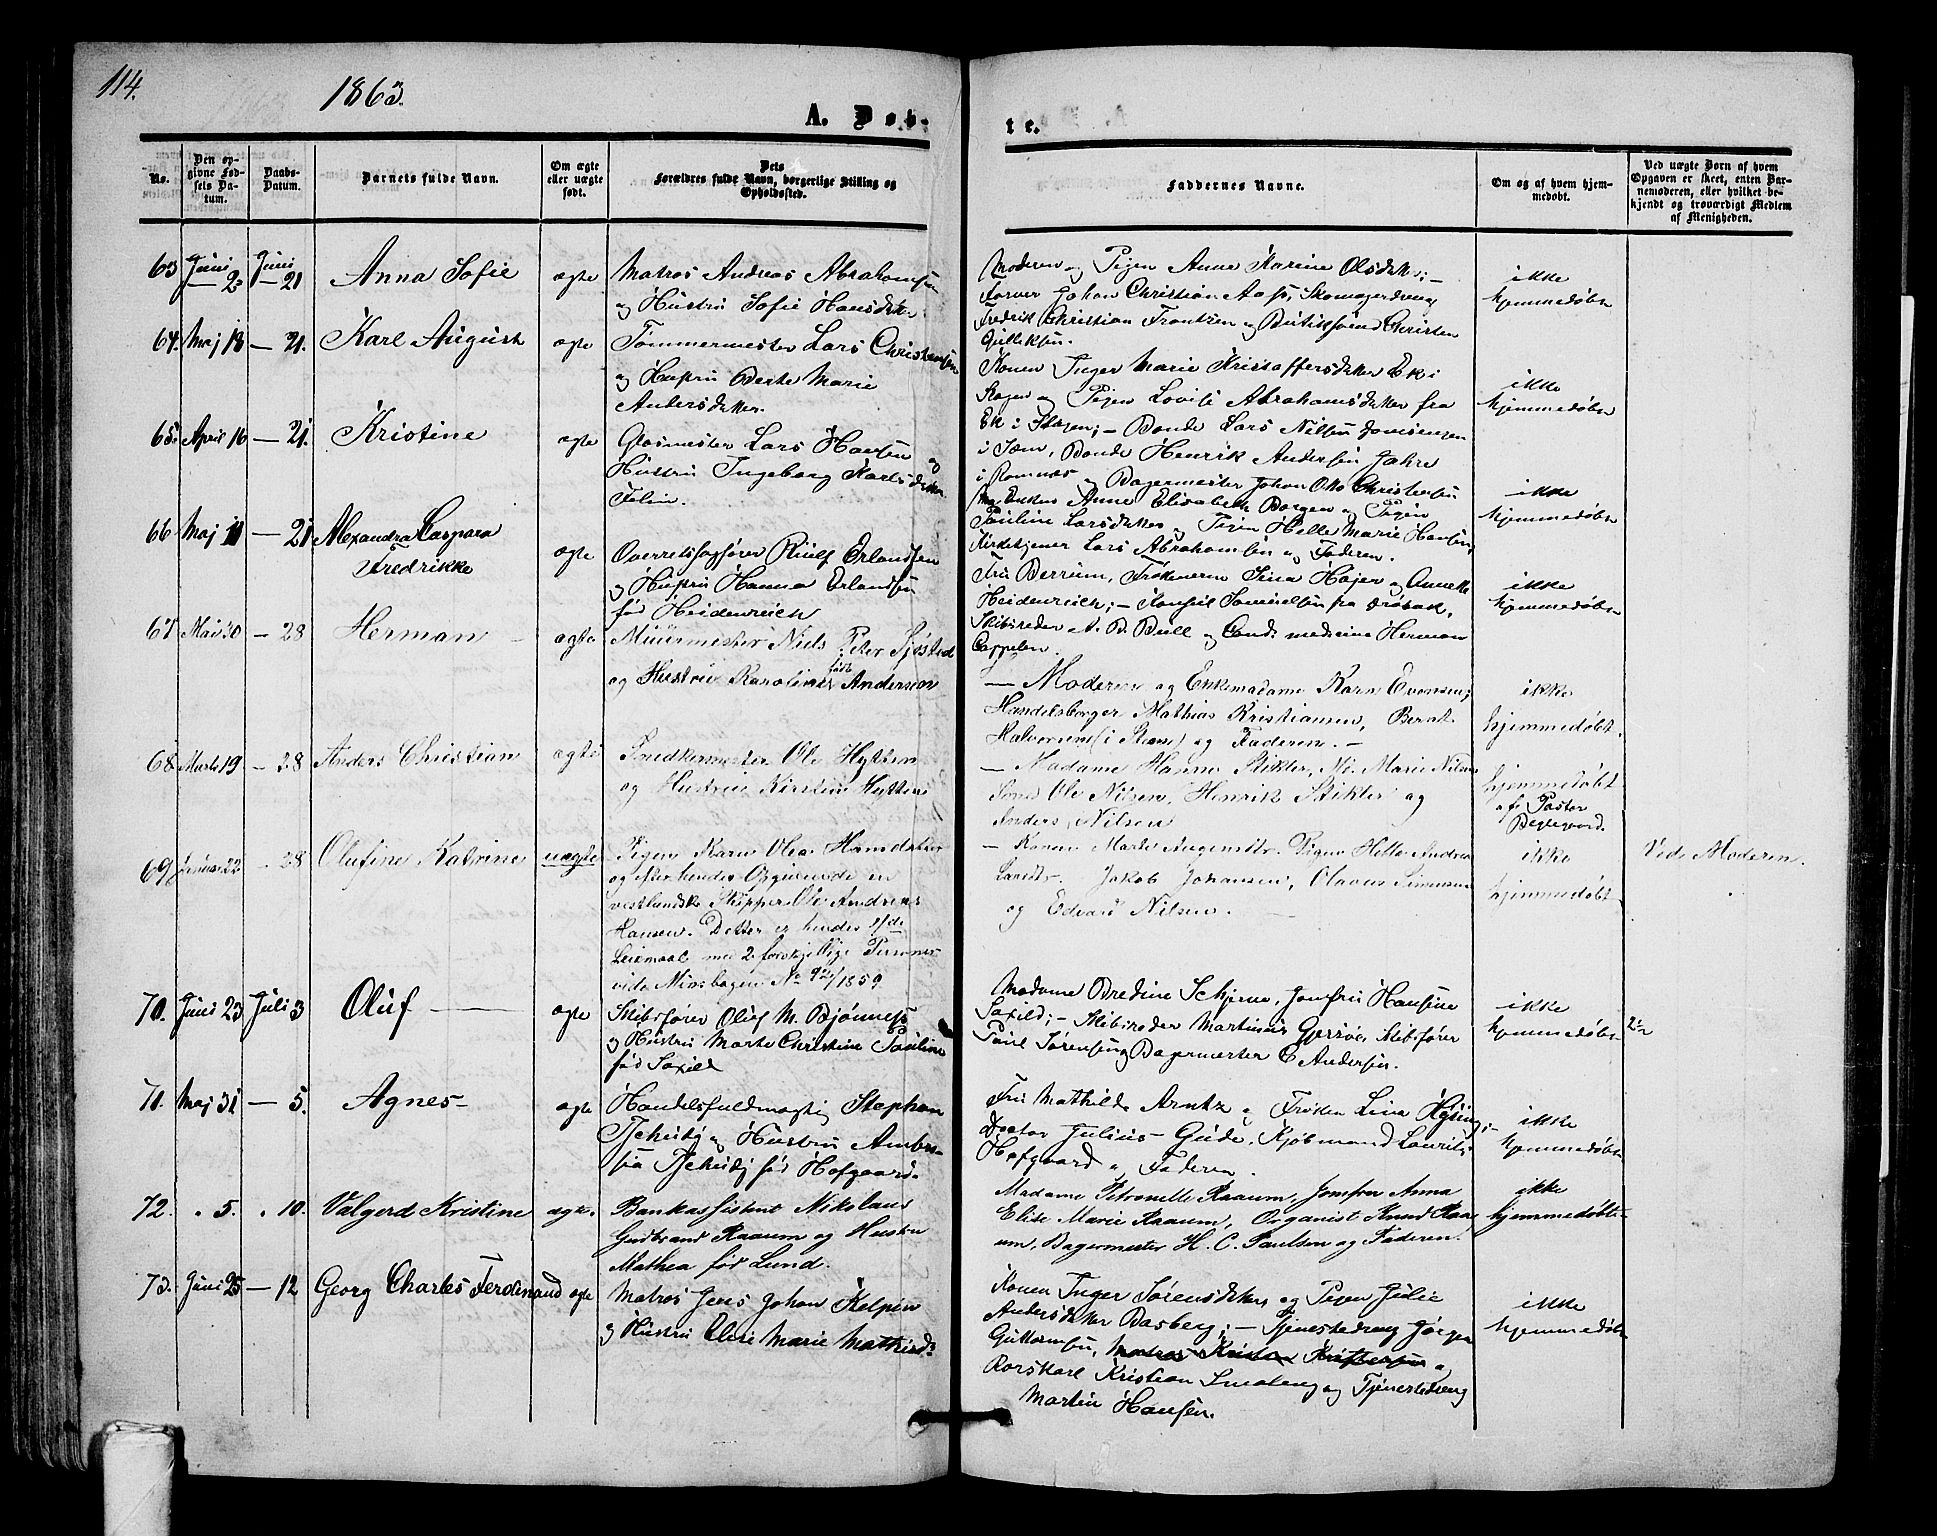 114.
1863.
A. Døb-
te.
No.
Den op-
givne Fød-
sels Da-
tum.
Daabs-
Datum.
Barnets fulde Navn.
Om ægte
eller uægte
født.
Dets
Forældres fulde Navn, borgerlige Stilling og
Opholdssted.
Faddernes Navne.
Om og af hvem hjem-
medøbt.
Ved uægte Børn af hvem
Opgaven er skeet, enten Bar-
nemoderen, eller hvilket be-
kjendt og troværdigt Medlem
af Menigheden.
63 Juni 2 Juni 21 Anna Sofie ægte
Matros Andreas Abrahamsen
og Hustru Sofie Hansdatter
Moderen og Pigen Anne Karine Olsdatter; –
Farver Johan Christian Aass, Skomagerdreng
Fredrik Christian Frantzen og Butiksvend Christen
Gulliksen.
ikke
hjemmedøbt
64. Maj 18 — 21. Karl August ægte
Tømmermester Lars Christiansen
og Hustru Berte Marie
Andersdatter.
Konen Inger Marie Kristoffersdatter Ek i
Skogen og Pigen Lovise Abrahamsdatter fra
Ek i Skogen; – Bonde Lars Nilsen
i Sem, Bonde Henrik Andersen Jahre
i Ramnæs og Bagermester Johan Otto Christensen
ikke
hjemmedøbt
65. April 16 — 21. Kristine ægte
Glasmester Lars Hansen og
Hustru Ingeborg Karlsdatter
Enken Anne Elisabeth Borgen og Pigen
Pauline Larsdatter og Pigen Helle Marie Hansen,
Kirketjener Lars Abrahamsen og Faderen.
ikke
hjemmedøbt
66 Maj 11 — 21 Alexandra Caspara
Fredrikke
ægte
Overretssagfører Riulf Erlandsen
og Hustru Hanna Erlandsen
født Heidenreich
Fru Berrum, Frøknerne Sina Højer og Annette
Heidenreich; – Konsul Samuelsen fra Drøbak,
Skibsreder A. B. Bull og Cand. medicine Herman
Cappelen.
ikke
hjemmedøbt
67 Mai 30 — 28 Herman — ægte
Muurmester Niels Peter Sjøsted
og Hustru Karoline født Anderson
— Moderen og Enkemadame Karn Evensen;
Handelsborger Mathias Kristiansen, Bernt
Halvorsen (i Stavs) og Faderen. –
ikke
hjemmedøbt.
68 Marts 19 — 28 Anders Christian ægte
Snedkermester Ole Hytten
og Hustru Kirstine Hytten
— Madame Hanne Stikter, Marie Nilsen
Ole Nilsen, Henrik Stikter og
Anders Nilsen
hjemmedøbt
af Pastor
69 Januar 22 — 28 Olufine Katrine uægte
Pigen Karn Olea Hansdatter
og efter hendes Opgivende en
vestlandsk Skipper Ole Andreas
Hansen. Dette er hendes 3die
Leiemaal med 2 forskjellige Personer
vide Minsbogen No 92/1859.
— Konen Marte Mogensdtr. Pigen Hilte Andrea
Larsdtr. Jakob Johansen, Olavus Simensen
og Edvard Nilsen.
ikke
hjemmedøbt
Vide Moderen.
70. Juni 23 Juli 3 Oluf — ægte
Skibsfører Oluf M. Bjønness
og Hustru Marte Christine Pauline
født Saxild
Madame Bredine Schjerve, Jomfru Hansine
Saxild; – Skibsreder Martinius Gjersøe, Skibsfører
Paul Sørensen og Bagermester C. Andersen.
ikke
hjemmedøbt
71. Maj 31 — 5. Agnes – ægte
Handelsfuldmægtig Stephan
Tscheidj og Hustru Ambro-
sia Tscheidj født Hofgaard.
Fru Mathilde Arntz og Frøken Lina
Doctor Julius Gude, Kjøbmand Laurits
Hofgaard og Faderen.
ikke
hjemmedøbt
72. „ 5. „ 10. Valgerd Kristine ægte.
Bankassistent Nikolaus
Gudbrand Raaum og Hustru
Mathea født Lund.
Madame Petronelle Raaum, Jomfru Anna
Elise Marie Raaum, Organist Knud Raa-
um, Bagermester H. C. Paulsen og Faderen.
ikke
hjemmedøbt
73. Juni 25 — 12 Georg Charles Ferdinand ægte
Matros Jens Johan Kelpin
og Hustru Elise Marie Mathisd:
Konen Inger Sørensdatter og Pigen Julie
Andersdatter Basberg; – Tjenestedreng Jørgen
Guttormsen, Matros Kristen Kristensen og
Rorskarl Kristian Smaleng og Tjenestedreng
Martin Hansen.
ikke
hjemmedøbt